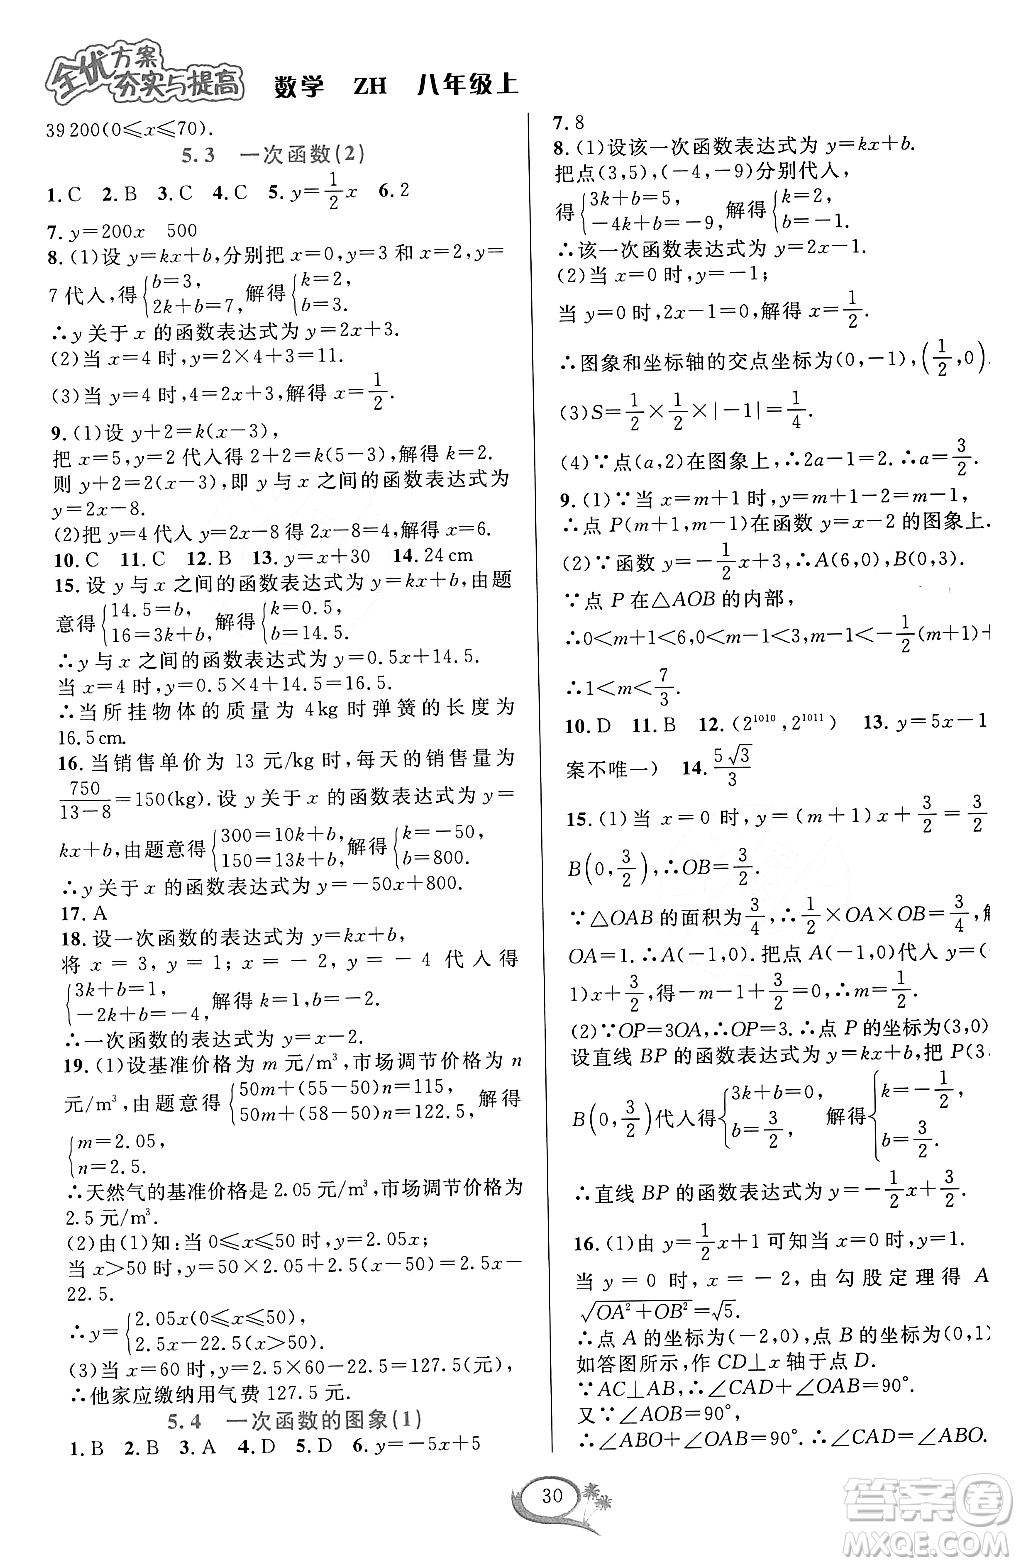 全优方案
夯实与提高 数学 ZH 八年级上
39 200(0≤x≤70).
5.3 一次函数(2)
1.C 2.B 3.C 4.C 5.y=\frac{1}{2}x 6.2
7.y=200x 500
8.(1)设 y=kx+b,分别把 x=0,y=3 和 x=2,y=
7代入,得{b=3, 2k+b=7,解得{k=2, b=3.
∴y 关于 x 的函数表达式为 y=2x+3.
(2)当 x=4 时,y=2×4+3=11.
(3)当 y=4 时,4=2x+3,解得 x=\frac{1}{2}.
9.(1)设 y+2=k(x-3),
把 x=5,y=2 代入得 2+2=k(5-3),解得 k=2,
则 y+2=2(x-3),即 y 与 x 之间的函数表达式为
y=2x-8.
(2)把 y=4 代入 y=2x-8 得 2x-8=4,解得 x=6.
10.C 11.C 12.B 13.y=x+30 14.24 cm
15.设 y 与 x 之间的函数表达式为 y=kx+b,由题
意得{14.5=b, 16=3k+b,解得{k=0.5, b=14.5.
∴y 与 x 之间的函数表达式为 y=0.5x+14.5.
当 x=4 时,y=0.5×4+14.5=16.5.
∴当所挂物体的质量为 4 kg 时弹簧的长度为
16.5 cm.
16.当销售单价为 13 元/kg 时,每天的销售量为
\frac{750}{13-8}=150(kg).设 y 关于 x 的函数表达式为 y=
kx+b,由题意得{300=10k+b, 150=13k+b,解得{k=-50, b=800.
∴y 关于 x 的函数表达式为 y=-50x+800.
17.A
18.设一次函数的表达式为 y=kx+b,
将 x = 3, y = 1; x = -2, y = -4 代入得
{3k+b=1, -2k+b=-4,解得 k=1,b=-2.
∴一次函数的表达式为 y=x-2.
19.(1)设基准价格为 m 元/m³,市场调节价格为 n
元/m³,由题意得{50m+(55-50)n=115, 50m+(58-50)n=122.5,解得
{m=2.05, n=2.5.
∴天然气的基准价格是 2.05 元/m³,市场调节价为
2.5 元/m³.
(2)由(1)知:当 0≤x≤50 时,y=2.05x;
当 x>50 时,y=50×2.05+2.5(x-50)=2.5x-
22.5.
∴y={2.05x(0≤x≤50), 2.5x-22.5(x>50).
(3)当 x=60 时,y=2.5×60-22.5=127.5(元),
∴他家应缴纳用气费 127.5 元.
5.4 一次函数的图象(1)
1.B 2.B 3.A 4.D 5.D 6.y=-5x+5
7.8
8.(1)设该一次函数表达式为 y=kx+b.
把点(3,5),(-4,-9)分别代入,
得{3k+b=5, -4k+b=-9,解得{k=2, b=-1.
∴该一次函数表达式为 y=2x-1.
(2)当 x=0 时,y=-1;
当 y=0 时,2x-1=0,解得 x=\frac{1}{2}.
∴图象和坐标轴的交点坐标为(0,-1),(\frac{1}{2},0).
(3)S=\frac{1}{2}×\frac{1}{2}×|-1|=\frac{1}{4}.
(4)∵点(a,2)在图象上,∴2a-1=2,∴a=\frac{3}{2}.
9.(1)∵当 x=m+1 时,y=m+1-2=m-1,
∴点 P(m+1,m-1)在函数 y=x-2 的图象上.
(2)∵函数 y=-\frac{1}{2}x+3,∴A(6,0),B(0,3).
∵点 P 在△AOB 的内部,
∴0<m+1<6,0<m-1<3,m-1<-\frac{1}{2}(m+1)+
∴1<m<\frac{7}{3}.
10.D 11.B 12.(2¹⁰¹⁰,2¹⁰¹¹) 13.y=5x-1
案不唯一) 14.\frac{5\sqrt{3}}{3}
15.(1)当 x = 0 时,y=(m+1)x+\frac{3}{2}=\frac{3}{2},
B(0,\frac{3}{2}).∴OB=\frac{3}{2}.
∵△OAB 的面积为\frac{3}{4},∴\frac{1}{2}×OA×OB=\frac{3}{4},
OA=1.∴A(-1,0).把点 A(-1,0)代入 y=(
1)x+\frac{3}{2},得-m-1+\frac{3}{2}=0,∴m=\frac{1}{2}.
(2)∵OP=3OA,∴OP=3.∴点 P 的坐标为(3,0)
设直线 BP 的函数表达式为 y=kx+b,把 P(3,
B(0,\frac{3}{2})代入得{3k+b=0, b=\frac{3}{2},解得{k=-\frac{1}{2}, b=\frac{3}{2}.
∴直线 BP 的函数表达式为 y=-\frac{1}{2}x+\frac{3}{2}.
16.(1)由 y=\frac{1}{2}x+1 可知当 x=0 时,y=1.
当 y = 0 时,x = -2,由勾股定理得 A
\sqrt{OA²+OB²}=\sqrt{5}.
∴点 A 的坐标为(-2,0),点 B 的坐标为(0,1)
如答图所示,作 CD⊥x 轴于点 D.
∵AC⊥AB,∴∠CAD+∠OAB=90°.
又∵∠AOB=90°,
∴∠ABO+∠OAB=90°.∴∠CAD=∠ABO.
30
答案圈
MXQE.COM